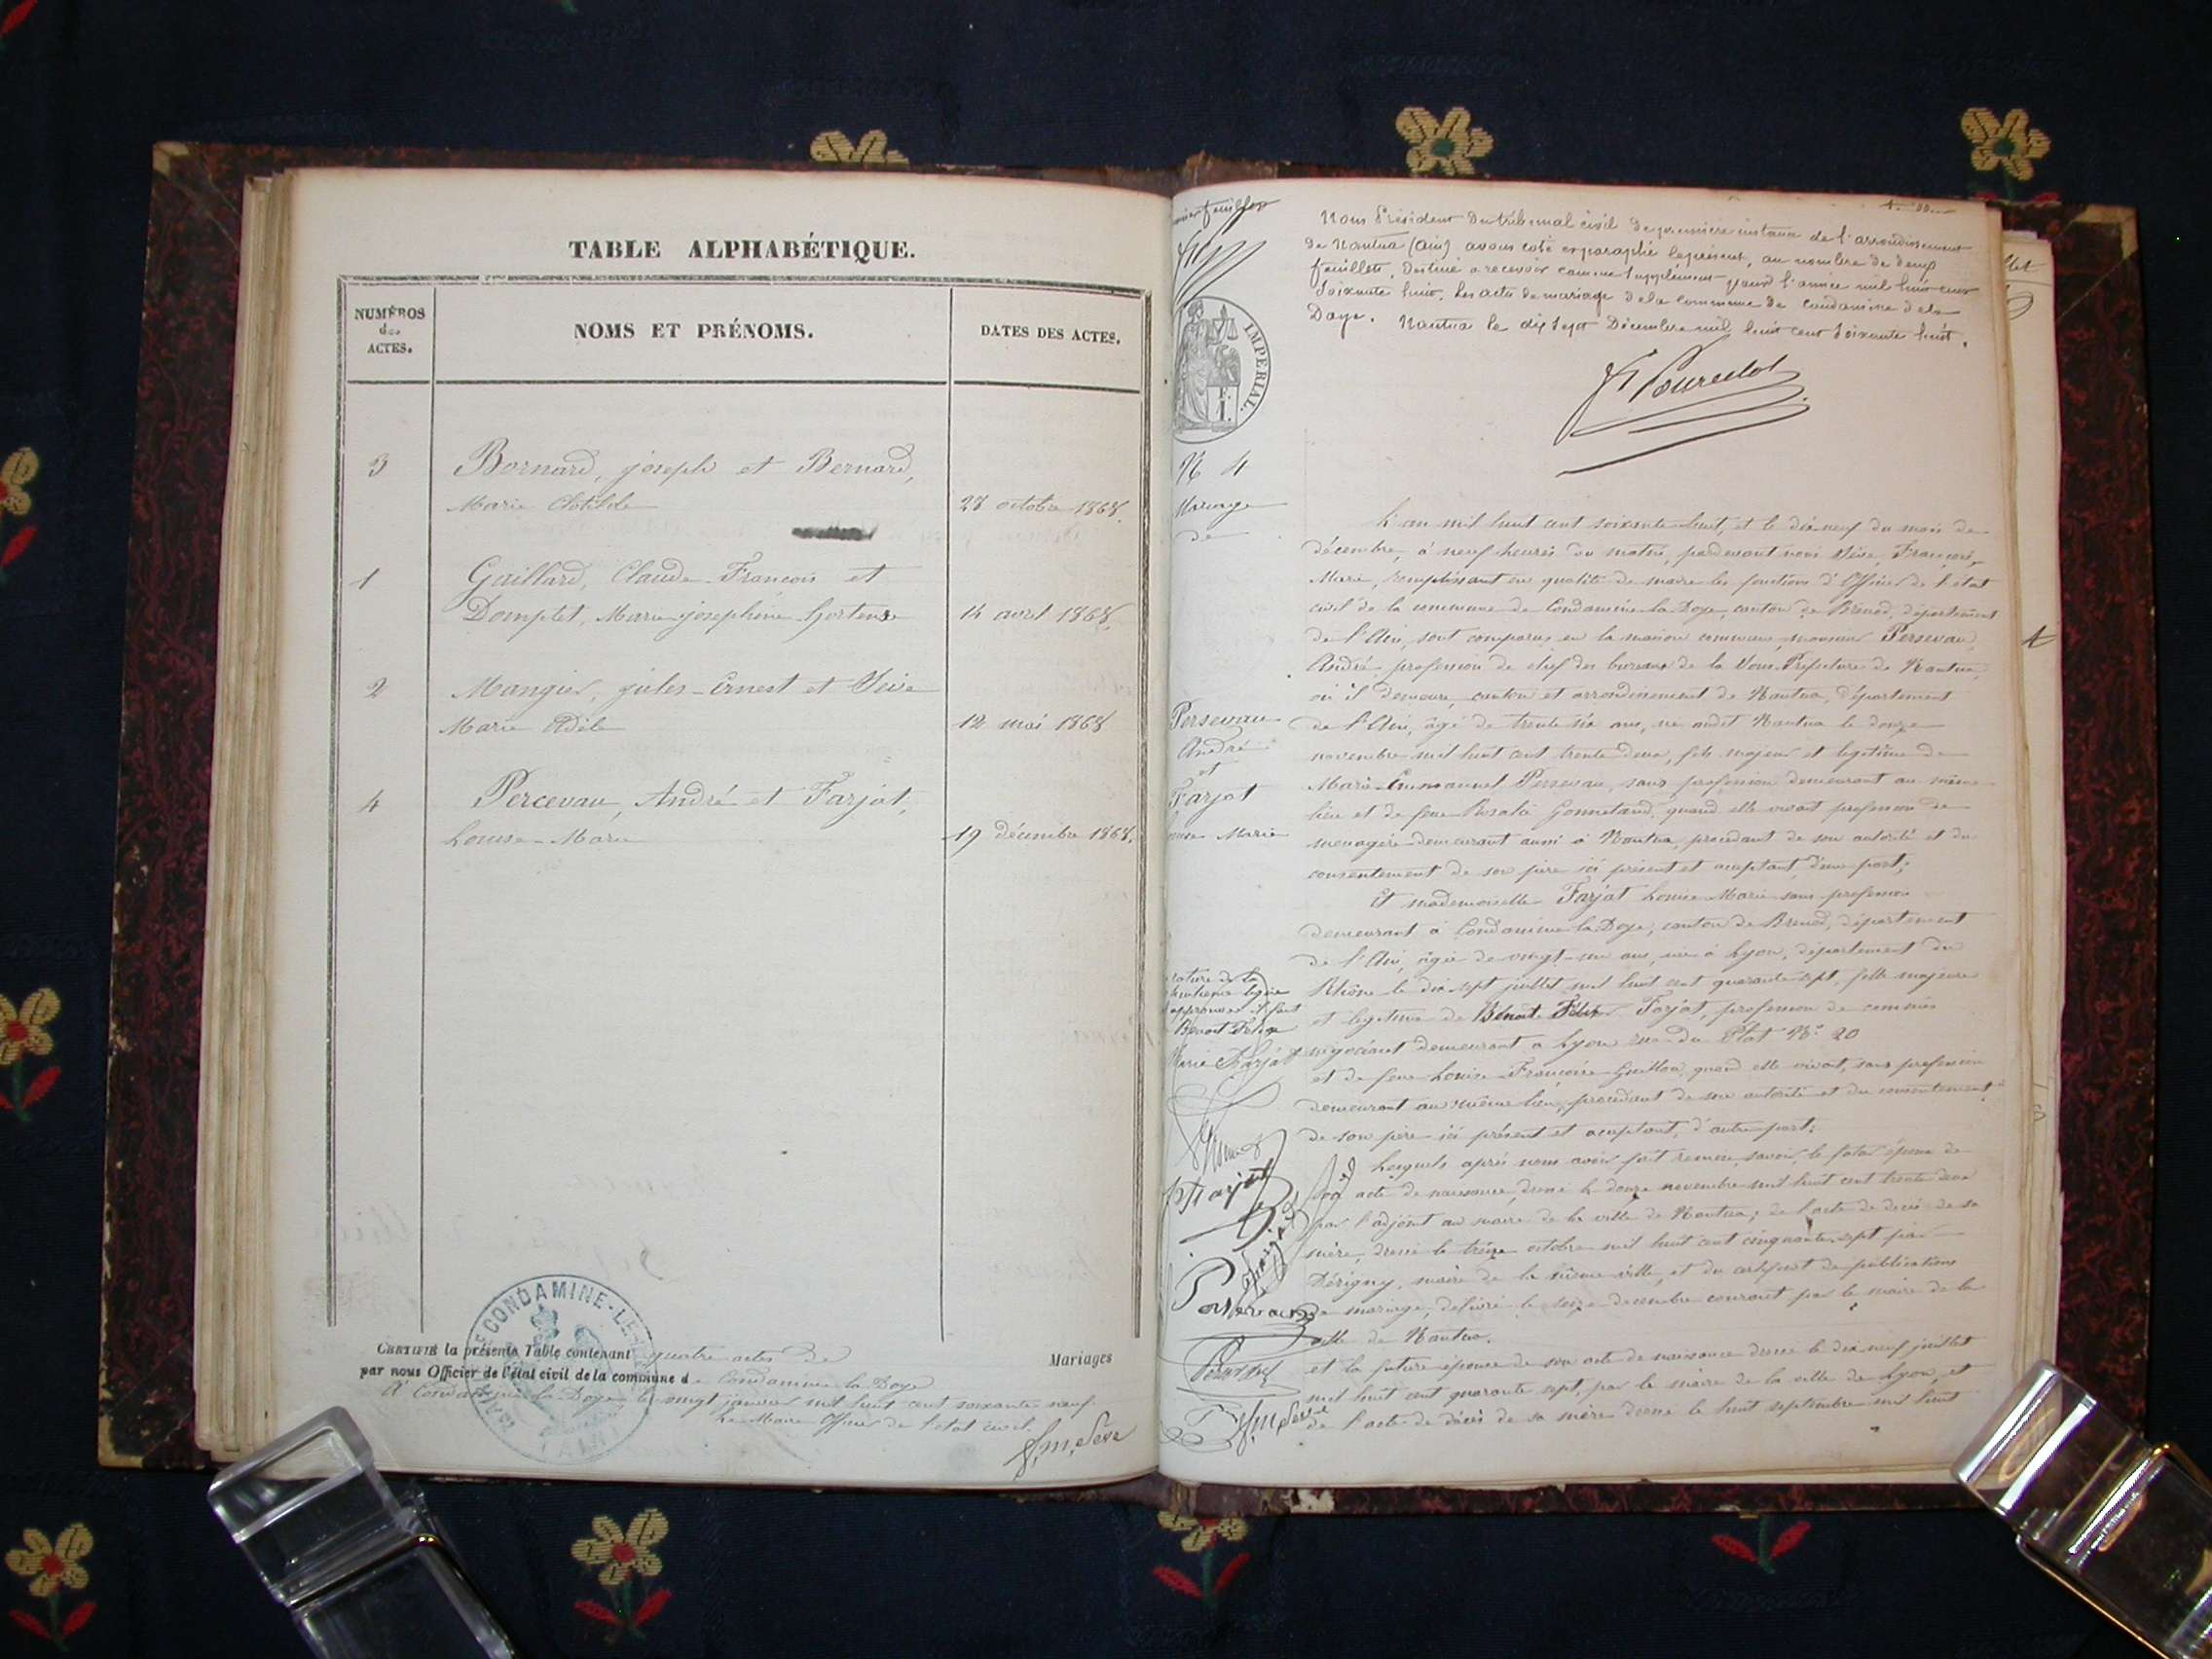 TABLE ALPHABÉTIQUE.
NUMÉROS
des
ACTES.
NOMS ET PRÉNOMS.
DATES DES ACTES.
3 Bornard, joseph et Bernard,
Marie Clotilde 28 octobre 1868.
1 Gaillard, Claude-François et
Domplet, Marie josephine hortense 14 avril 1868.
2 Mangier, jules-Ernest et Sève
Marie Adèle 12 mai 1868
4 Percevau, André et Farjat,
Louise-Marie 19 décembre 1868.
CERTIFIÉ la présente Table contenant quatre actes de Mariages
par nous Officier de l'état civil de la commune d e Condamine la Doye
A Condamine la Doye, le vingt janvier mil huit cent soixante neuf.
Le Maire Officier de l'état civil.
f. m. Sève
CONDAMINE-LE
Nous Président du tribunal civil de première instance de l'arrondissement
de Nantua (Ain) avons coté et paraphé le présent, au nombre de deux
feuillets, destiné a recevoir comme supplément pour l'année mil huit cent
soixante huit, les actes de mariage de la commune de Condamine de la
Doye. Nantua le dix sept Décembre mil huit cent soixante huit.
IMPERIAL.
N 4
Mariage
de
Persevau
André
et
Farjat
Louise-Marie
L'an mil huit cent soixante-huit, et le dix-neuf du mois de
décembre, à neuf heures du matin, pardevant nous Sève, François,
Marie, remplissant en qualité de maire les fonctions d'Officier de l'état
civil de la commune de Condamine-la-Doye, canton de Brénod, département
de l'Ain, sont comparus en la maison commune, monsieur Persevau,
André, profession de chef des bureaux de la Sous-Préfecture de Nantua,
où il demeure, canton et arrondissement de Nantua, département
de l'Ain, âgé de trente six ans, né audit Nantua le douze
novembre mil huit cent trente deux, fils majeur et légitime de
Marie-Emmanuel Persevau, sans profession demeurant au même
lieu et de feue Rosalie quand elle vivait profession de
menagère demeurant aussi à Nantua, procédant de son autorité et du
consentement de son père ici présent et acceptant, d'une part;
Et mademoiselle Farjat Louise-Marie sans profession
demeurant à Condamine la Doye, canton de Brénod, département
de l'Ain, âgée de vingt-un ans, née à Lyon, département du
Rhône le dix sept juillet mil huit cent quarante sept, fille majeure
et légitime de Benoit Félix Farjat, profession de commis
négociant demeurant a Lyon rue du Plat N° 20
et de feue Louise-Françoise quand elle vivait, sans profession
demeurant au même lieu, procédant de son autorité et du consentement
de son père ici présent et acceptant, d'autre part;
Lesquels après nous avoir fait remise, savoir, le futur époux de
son acte de naissance dressé le douze novembre mil huit cent trente deux
par l'adjoint au maire de la ville de Nantua; de l'acte de décès de sa
mère, dressé le treize octobre mil huit cent cinquante-sept par
Dérigny, maire de la même ville, et du certificat de publications
de mariage, délivré le seize décembre courant par le maire de la
ville de Nantua.
et la future épouse de son acte de naissance dressé le dix neuf juillet
mil huit cent quarante sept, par le maire de la ville de Lyon, et
de l'acte de décès de sa mère dressé le huit septembre mil huit
Benoit Felix
Marie Farjat
Farjat
Persevau
f. m. Sève